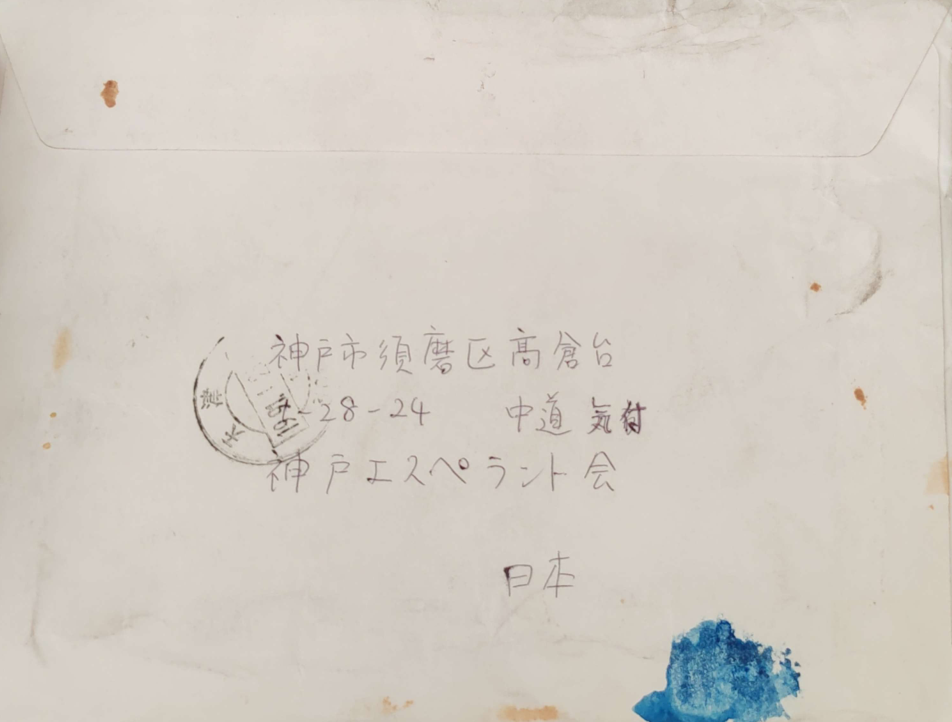 神戸市須磨区高倉台
-28-24 中道 気付
神戸エスペラント会
日本
天津